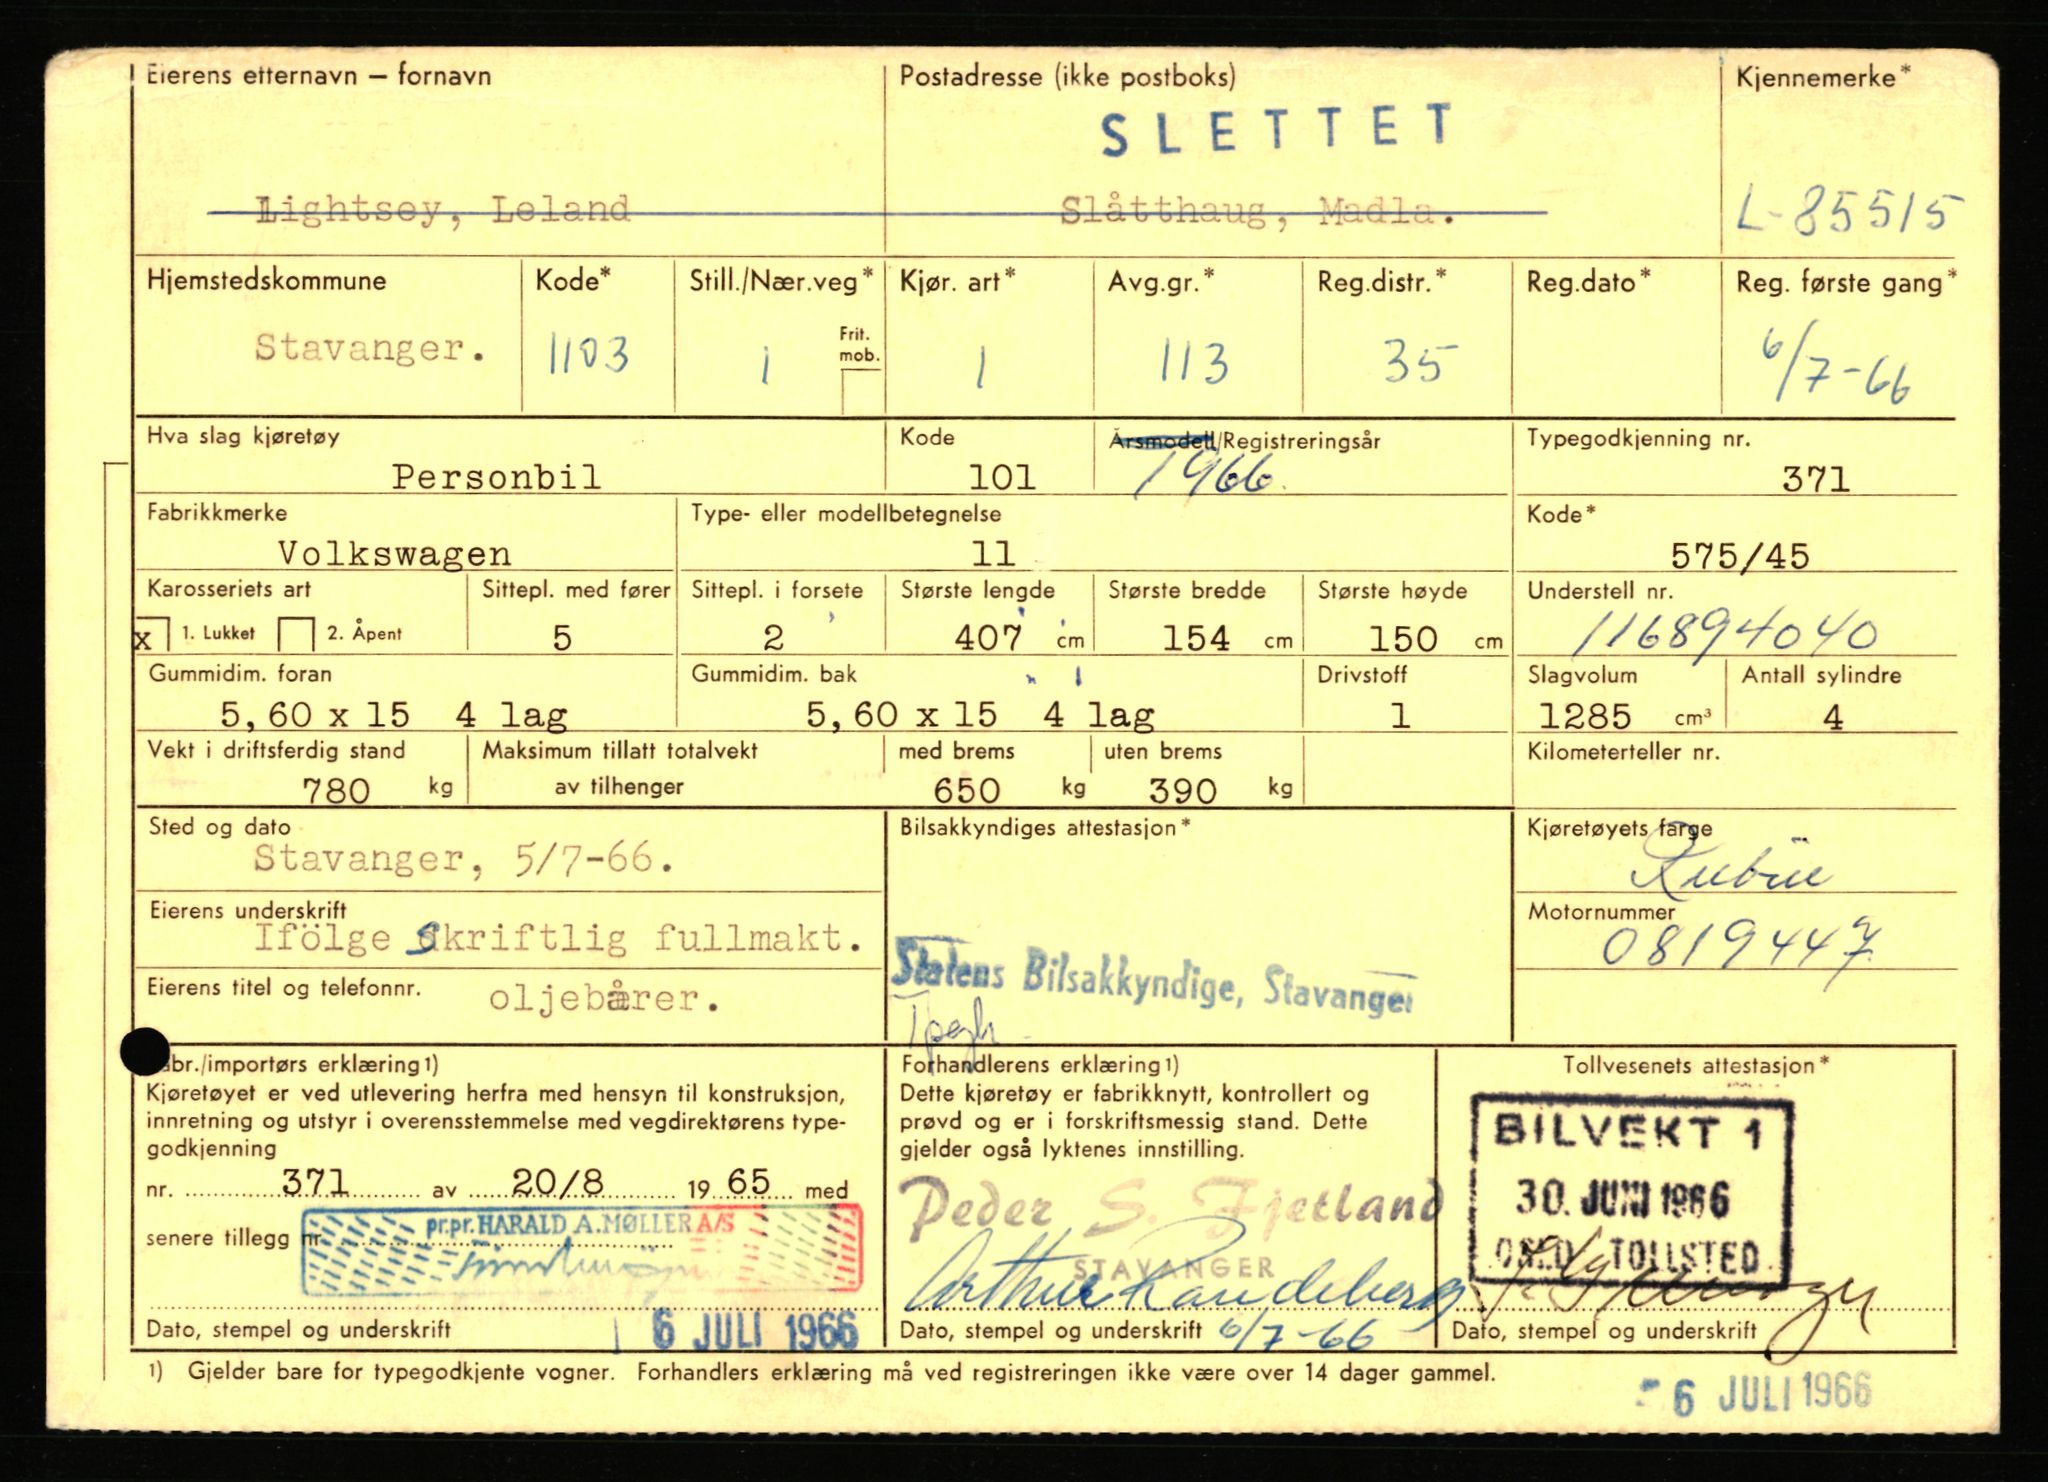 Eierens etternavn – fornavn
Postadresse (ikke postboks)
Kjennemerke*
SLETTET
Lightsey, Leland
Slåtthaug, Madla.
L-85515
Hjemstedskommune
Kode*
Still./Nær.veg*
Kjør. art*
Avg.gr.*
Reg.distr.*
Reg.dato*
Reg. første gang*
Stavanger.
1103
1
Frit. mob.
1
113
35
6/7-66
Hva slag kjøretøy
Kode
Årsmodell/Registreringsår
Typegodkjenning nr.
Personbil
101
1966.
371
Fabrikkmerke
Type- eller modellbetegnelse
Kode*
Volkswagen
11
575/45
Karosseriets art
Sittepl. med fører
Sittepl. i forsete
Største lengde
Største bredde
Største høyde
Understell nr.
x 1. Lukket
2. Åpent
5
2
407 cm
154 cm
150 cm
116894040
Gummidim. foran
Gummidim. bak
Drivstoff
Slagvolum
Antall sylindre
5,60 x 15 4 lag
5,60 x 15 4 lag
1
1285 cm³
4
Vekt i driftsferdig stand
Maksimum tillatt totalvekt
med brems
uten brems
Kilometerteller nr.
780 kg
av tilhenger
650 kg
390 kg
Sted og dato
Bilsakkyndiges attestasjon*
Kjøretøyets farge
Stavanger, 5/7-66.
Eierens underskrift
Motornummer
Ifölge Skriftlig fullmakt.
0819447
Statens Bilsakkyndige, Stavanger
Eierens titel og telefonnr.
oljebårer.
abr./importørs erklæring1)
Kjøretøyet er ved utlevering herfra med hensyn til konstruksjon,
innretning og utstyr i overensstemmelse med vegdirektørens type-
godkjenning
nr. 371 av 20/8 19 65 med
pr.pr. HARALD A. MØLLER A/S
senere tillegg nr.
Dato, stempel og underskrift
6 JULI 1966
Forhandlerens erklæring1)
Dette kjøretøy er fabrikknytt, kontrollert og
prøvd og er i forskriftsmessig stand. Dette
gjelder også lyktenes innstilling.
Peder S. Fjetland
STAVANGER
Arthur Randeberg
Dato, stempel og underskrift 6/7-66
Tollvesenets attestasjon*
BILVEKT 1
30. JUNI 1966
OSLO TOLLSTED
Dato, stempel og underskrift
1) Gjelder bare for typegodkjente vogner. Forhandlers erklæring må ved registreringen ikke være over 14 dager gammel.
- 6 JULI 1966